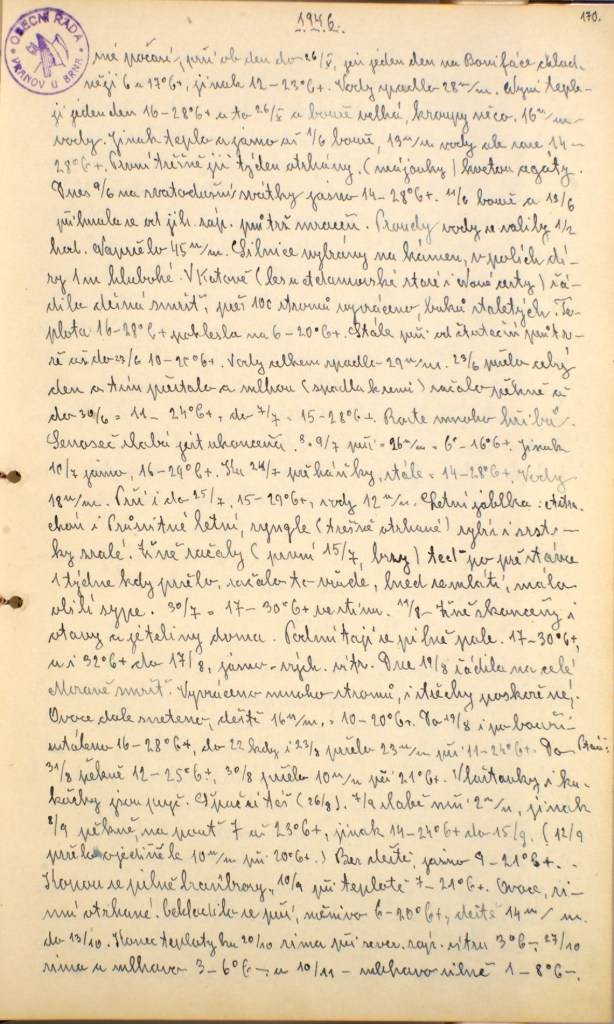 1946.
170.
OBECNÍ RADA
VRANOV U BRNA
mé počasí, prší ob den do 26/V, jen jeden den na Bonifáce chlad-
něji 6 a 17°C+, jinak 12-23°C+. Vody spadlo 28 m/m. Nyní teple-
ji jeden den 16-28°C+ a to 26/V a bouře velká, kroupy něco. 16 m/m
vody. Jinak teplo a jasno až 1/6 bouře, 13 m/m vody ale zase 14-
28°C+. První třešně již týden otrhány. (májovky) kvetou agáty.
Dnes 9/6 na svatodušní svátky jasno 14-28°C+. 11/6 bouře a 12/6
přihnala se od jih. záp. průtrž mračen. Proudy vody se valily 1/2
hod. Napršelo 45 m/m. Silnice vybrány na kámen, v polích dí-
ry 1 m hluboké. V Katově (les u staré i nové cesty) řá-
dila děsná smršť, přes 100 stromů vyvráceno, buků staletých. Te-
plota 16-28°C+ poklesla na 6-20°C+. Stále prší od průtr-
že až do 23/6 10-20°C+. Vody celkem spadlo 29 m/m. 23/6 pršelo celý
den a tím přestalo a mlhou (spadla k zemi) začalo pěkně až
do 30/6 = 11-24°C+, do 7/7 = 15-28°C+. Roste mnoho hřibů.
Senoseč slabá jest ukončena. 8 a 9/7 prší = 26 m/m = 6-16°C+. Jinak
10/7 jasno, 16-29°C+. Ku 24/7 přeháňky, stále = 14-28°C+. Vody
18 m/m. Prší i do 25/7, 15-29°C+, vody 12 m/m. Letní jablka: Astra-
chán i Průsvitné letní, ryngle (třešně otrhané) rybíz i srst-
ky zralé. Žně začaly (první 15/7, brzy) teď po přestávce
1 týdne kdy pršelo, začalo to všude, hned se mlátí, málo
obilí sype. 30/7 = 17-30°C+ ve stínu. 11/8 - Žně skončeny i
otavy a jeteliny doma. Podmítají se pilně pole. 17-30°C+,
a i 32°C+ do 17/8, jasno - vých. vítr. Dne 18/8 řádila na celé
Moravě smršť. Vyvráceno mnoho stromů, i střechy poškozené.
Ovoce dole smeteno, deště 16 m/m = 10-20°C+. Do 19/8 i po bouři
ustáleno 16-28°C+, do 22 kdy i 23/8 pršelo 23 m/m při 11-24°C+. Do
31/8 pěkně 12-25°C+, 30/8 pršelo 10 m/m při 21°C+. Vlaštovky i ku-
kačky jsou pryč. Špačci též (26/8). 7/9 slabě mží 2 m/m, jinak
8/9 pěkně, na pouť 7 až 23°C+, jinak 14-24°C+ do 15/9. (12/9
pršelo ojediněle 10 m/m při 20°C+.) Bez deště, jasno 9-21°C+.
Kopou se pilně brambory, 10/9 při teplotě 7-21°C+. Ovoce, zi-
mní otrhané. Ochladilo se prší, měnivo 6-20°C+, deště 14 m/m.
do 13/10. Konec teploty ku 20/10 zima při sever. záp. větru 3°C-. 27/10
zima a mlhavo 3-6°C- a 10/11 - mlhavo silně 1-8°C-.